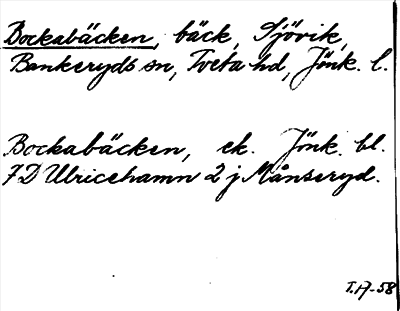 Bockabäcken, bäck, Sjövik,
Bankeryds sn, Tveta hd, Jönk. l.
Bockabäcken, ek. Jönk. bl.
7D Ulricehamn 2 j Månseryd.
T.17-58